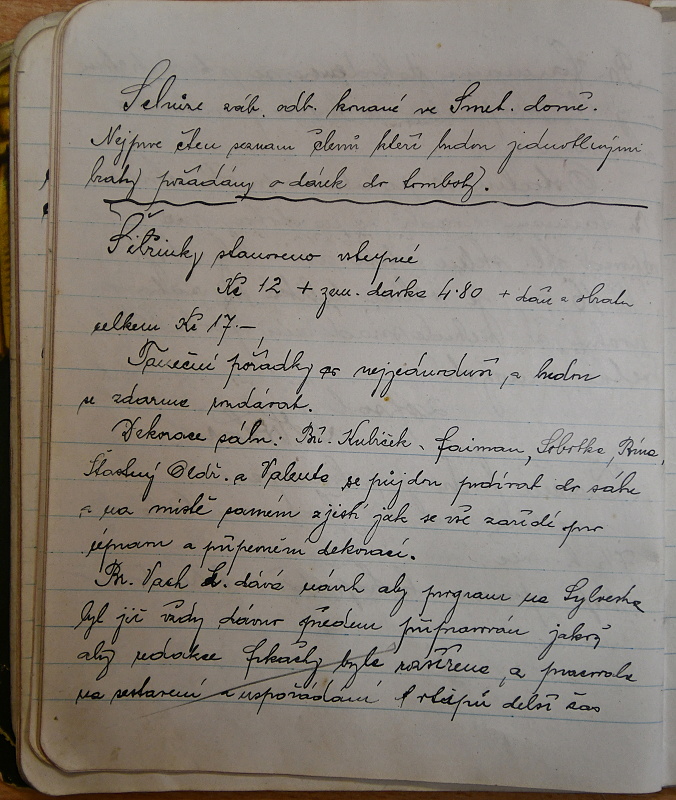 Schůze záb. odb. konané ve Smet. domě.
Nejprve čten seznam členů kteří budou jednotlivými
brátry požádány o dárek do tomboly.
Šibřinky stanoveno vstupné
Kč 12 + zem. dávka 4·80 + daň z obratu
celkem Kč 17.—
Taneční pořádky co nejjednodušší, a budou
se zdarma rozdávat.
Dekorace sálu: Bř. Kubíček, Faiman, Sobotka, Bína,
Šťastný Oldř. a Valenta se půjdou podívat do sálu
a na místě samém zjistí jak se vše zařídí pro
úpravu a připevnění dekorací.
Br. Vach L. dává návrh aby program na Sylvestra
byl již vždy dávno předem připravován jakož
aby redakce Frkačky byla rozšířena, a pracovala
na sestavení a uspořádání vtipů delší čas